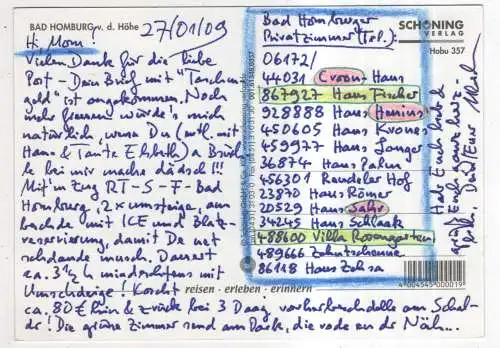 BAD HOMBURG v. d. Höhe
27/01/09
Hi, Mom!
Vielen Dank für die liebe
Post - Dein Brief mit "Taschen-
geld" ist angekommen. Noch
mehr freuen würde's mich
natürlich, wenn Du (evtl. mit
Hans & Tante Elsbeth) a Büchs-
le bei mir mache dädsch!!!
Mit'm Zug RT-S-F-Bad
Homburg, 2x umsteige, am
beschde mit ICE und Platz-
reservierung, damit Du net
schdande musch. Dauert
ca. 3½ h mindeschtens mit
Umschdeige! Koscht
ca. 80 € hin & zrück bei 3 Daag vorherbeschdella am Schal-
dr! Die grüne Zimmer send am Park, die rode en dr Näh...
Bad Homburger
Privatzimmer (Tel.):
06172/
44031 Croon, Haus
867927 Haus Fischer
928888 Haus Henius
450605 Haus Krones
459977 Haus Langer
36874 Haus Palm
456301 Rendeler Hof
23870 Haus Römer
20529 Haus Sahr
34245 Haus Schlaak
488600 Villa Rosengarten
489666 Zehntscheune
86148 Haus Zehsa
SCHÖNING
VERLAG
Hobu 357
Habt Euch lieb &
grüßt Euch ganz herz-
lich. Dein/Euer
reisen · erleben · erinnern
4 004545 000019